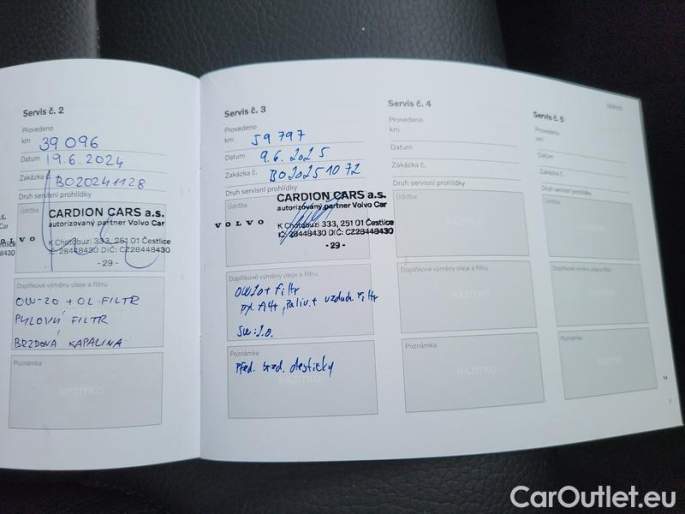 Servis č. 2
Provedeno
km 39 096
Datum 19.6.2024
Zakázka č. BO20241128
Druh servisní prohlídky
Údržba
CARDION CARS a.s.
autorizovaný partner Volvo Car
VOLVO
K Chotobuzi 333, 251 01 Čestlice
IČ: 26448430 DIČ: CZ26448430
- 29 -
Doplňkové výměny oleje a filtru
OW-20 + OL FILTR
PYLOVÝ FILTR
BRZDOVÁ KAPALINA
Poznámka
Servis č. 3
Provedeno
km 59 797
Datum 9.6.2025
Zakázka č. BO20251072
Druh servisní prohlídky
Údržba
CARDION CARS a.s.
autorizovaný partner Volvo Car
VOLVO
K Chotobuzi 333, 251 01 Čestlice
IČ: 26448430 DIČ: CZ26448430
- 29 -
Doplňkové výměny oleje a filtru
OW20 + filtr
pyl A4+, paliv. + vzduch. filtr
Poznámka
Před. brzd. destičky
Servis č. 4
Provedeno
km
Datum
Zakázka č.
Druh servisní prohlídky
Údržba
Doplňkové výměny oleje a filtru
Poznámka
Servis č. 5
Provedeno
km
Datum
Zakázka č.
Druh servisní prohlídky
Údržba
Doplňkové výměny oleje a filtru
Poznámka
CarOutlet.eu